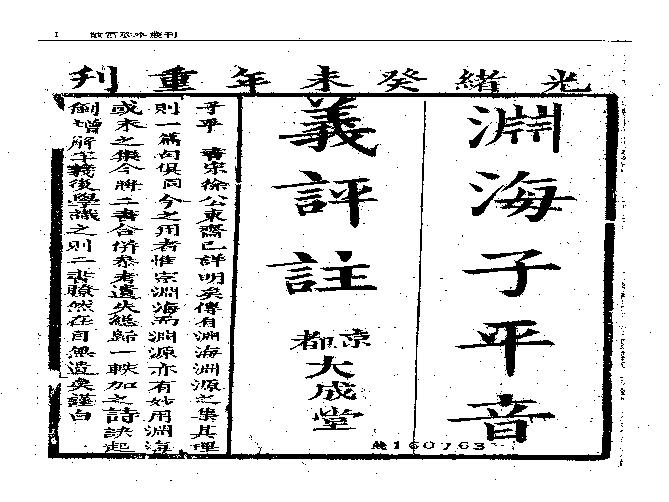 1 故宮珍本叢刊
光緒癸未年重刊
淵海子平音
義評註
京都
大成堂
子平 書宋徐公東齋已詳明矣傳有淵海淵源之集其理
則一篇句俱同今之用者惟宗淵海而淵源亦有妙用淵海
或未之集今將二書合併叅考遺失總歸一帙加之詩訣起
例增解字義後學識之則二書瞭然在目無遺矣謹白
160763